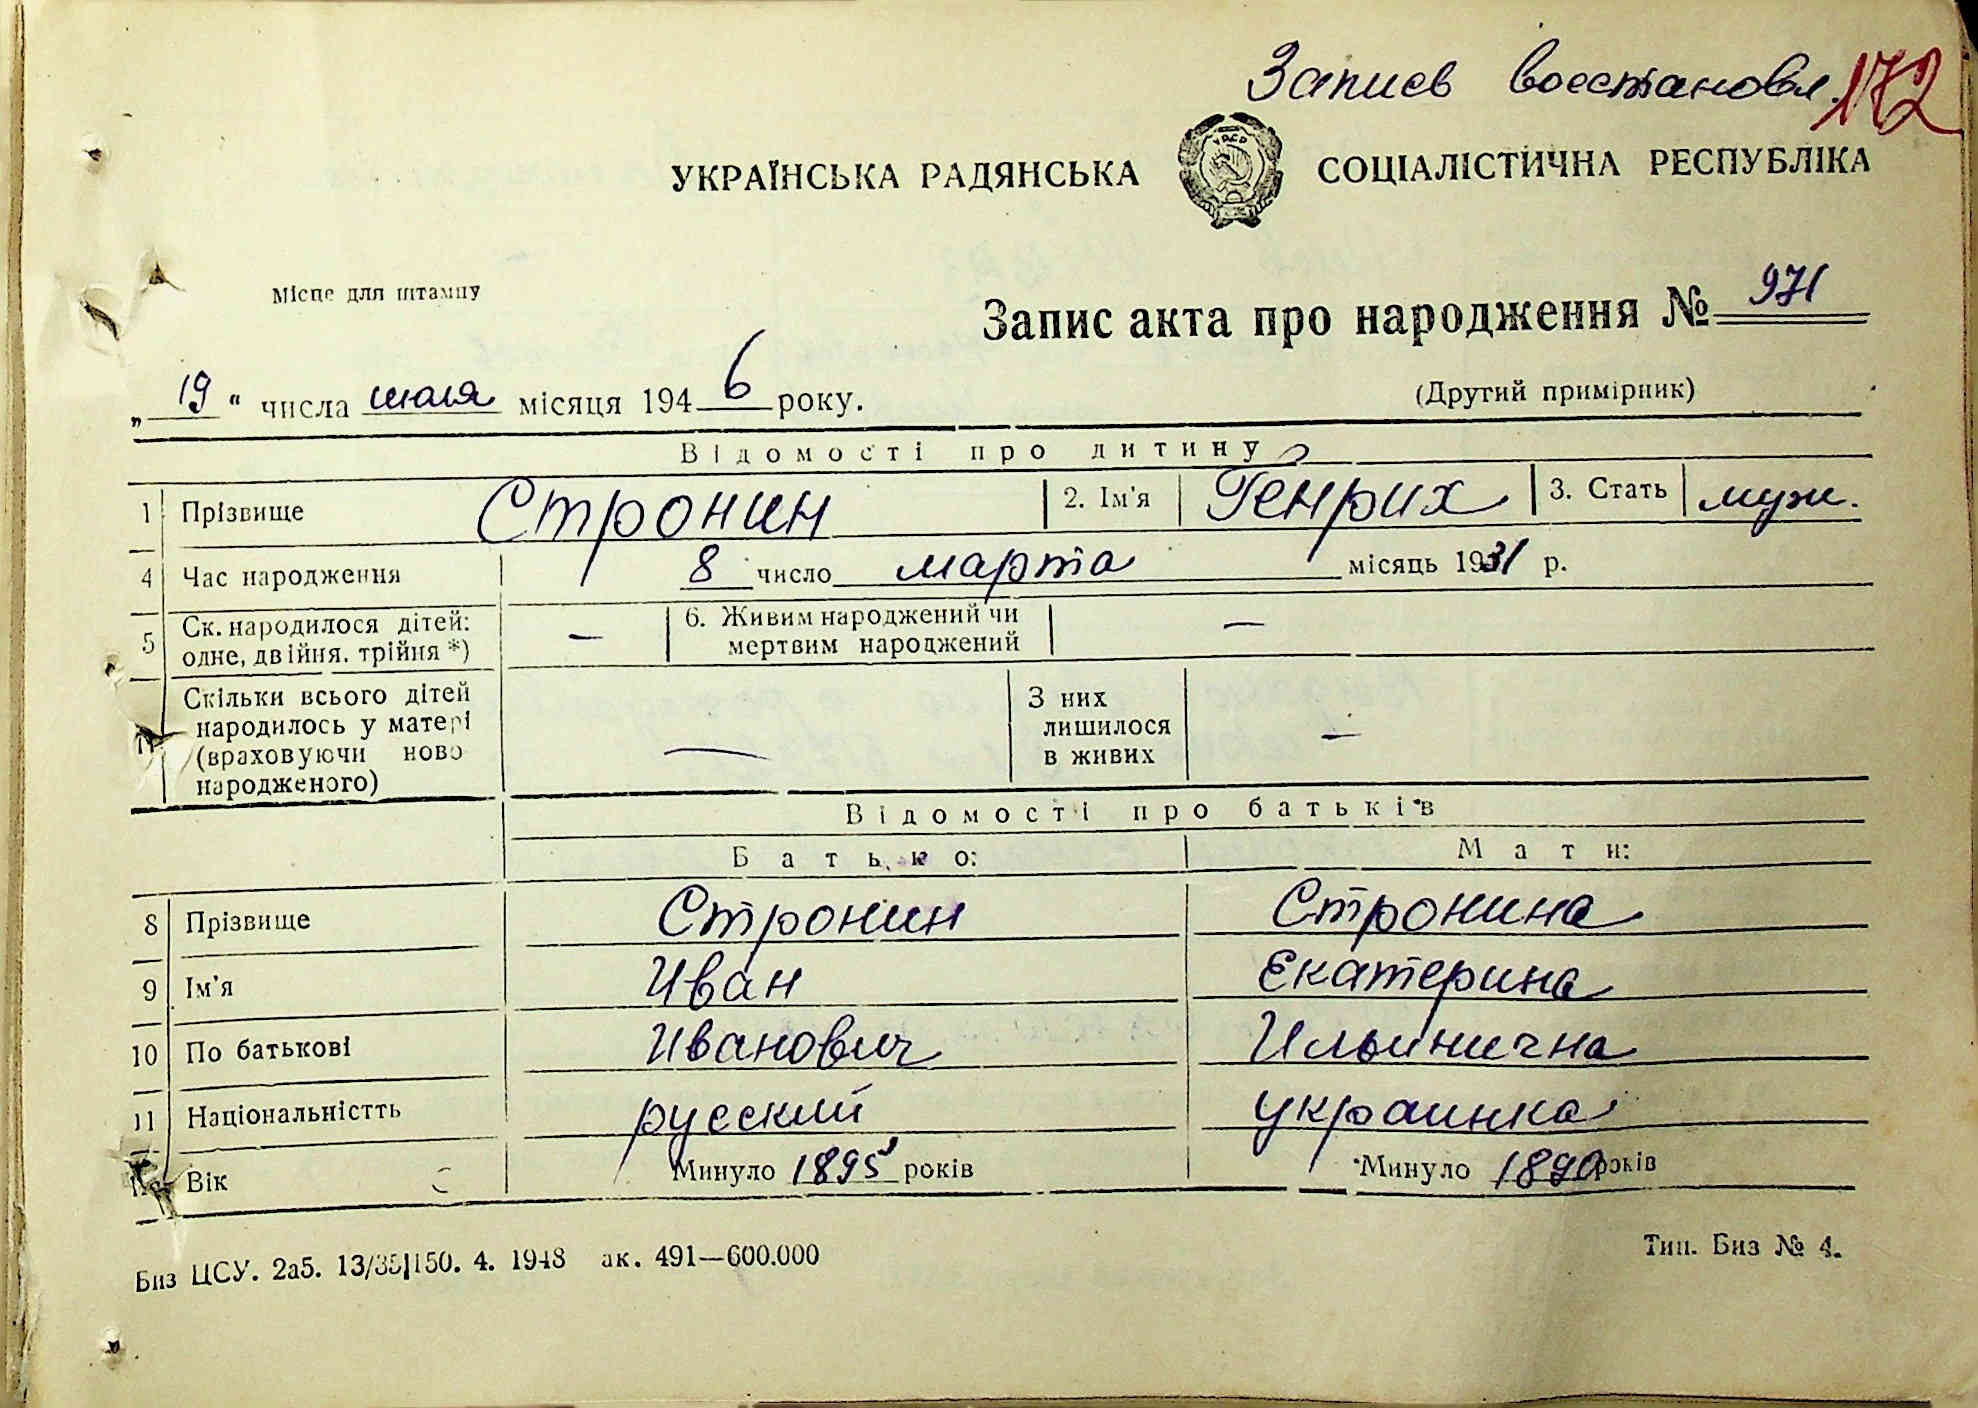 Запись восстановл. 172
УКРАЇНСЬКА РАДЯНСЬКА СОЦІАЛІСТИЧНА РЕСПУБЛІКА
УРСР
Місце для штампу
Запис акта про народження № 971
„19“ числа июля місяця 1946 року.
(Другий примірник)
Відомості про дитину
1 Прізвище Стронин 2. Ім'я Генрих 3. Стать муж.
4 Час народження 8 число марта місяць 1931 р.
5 Ск. народилося дітей: одне, двійня, трійня *) — 6. Живим народжений чи мертвим народжений —
Скільки всього дітей народилось у матері (враховуючи ново народженого) — З них лишилося в живих —
Відомості про батьків
Батько: Мати:
8 Прізвище Стронин Стронина
9 Ім'я Иван Екатерина
10 По батькові Иванович Ильинична
11 Національністть русский украинка
Вік Минуло 1895 років Минуло 1890 років
Биз ЦСУ. 2а5. 13/35|150. 4. 1948 ак. 491—600.000 Тип. Биз № 4.